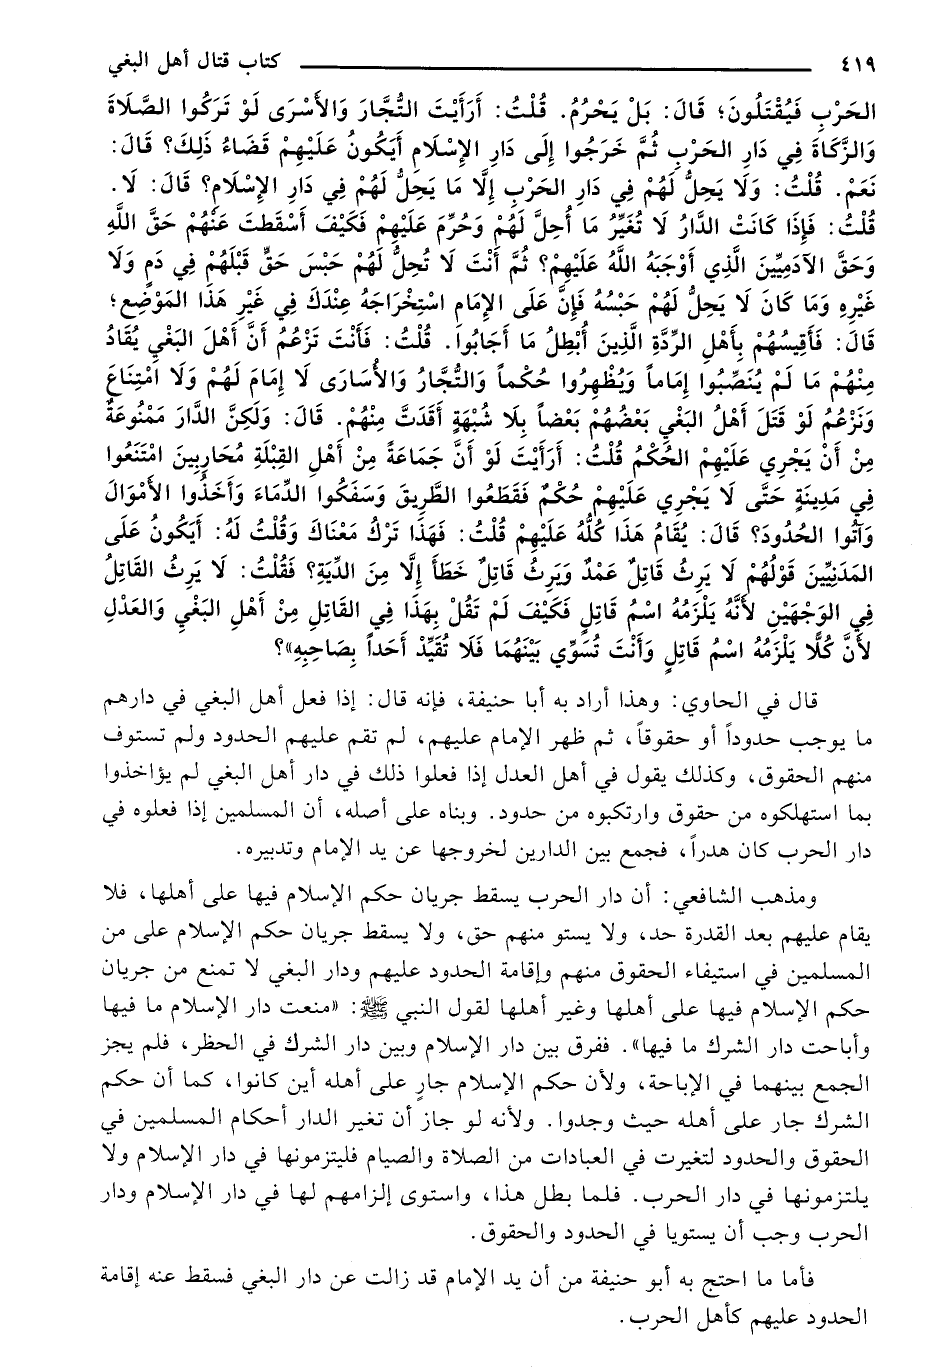 ٤١٩ كتاب قتال أهل البغي
الحَرْبِ فَيُقْتَلُونَ؛ قَالَ: بَلْ يَحْرُمُ. قُلْتُ: أَرَأَيْتَ التُّجَّارَ وَالأَسْرَى لَوْ تَرَكُوا الصَّلَاةَ
وَالزَّكَاةَ فِي دَارِ الحَرْبِ ثُمَّ خَرَجُوا إِلَى دَارِ الإِسْلَامِ أَيَكُونُ عَلَيْهِمْ قَضَاءُ ذَلِكَ؟ قَالَ:
نَعَمْ. قُلْتُ: وَلَا يَحِلُّ لَهُمْ فِي دَارِ الحَرْبِ إِلَّا مَا يَحِلُّ لَهُمْ فِي دَارِ الإِسْلَامِ؟ قَالَ: لَا.
قُلْتُ: فَإِذَا كَانَتْ الدَّارُ لَا تُغَيِّرُ مَا أُحِلَّ لَهُمْ وَحُرِّمَ عَلَيْهِمْ فَكَيْفَ أَسْقَطتَ عَنْهُمْ حَقَّ اللَّهِ
وَحَقَّ الآدَمِيِّينَ الَّذِي أَوْجَبَهُ اللَّهُ عَلَيْهِمْ؟ ثُمَّ أَنْتَ لَا تُحِلُّ لَهُمْ حَبْسَ حَقٍّ قَبْلَهُمْ فِي دَمٍ وَلَا
غَيْرِهِ وَمَا كَانَ لَا يَحِلُّ لَهُمْ حَبْسُهُ فَإِنَّ عَلَى الإِمَامِ اسْتِخْرَاجَهُ عِنْدَكَ فِي غَيْرِ هَذَا المَوْضِعِ؛
قَالَ: فَأَقِيسُهُمْ بِأَهْلِ الرِّدَّةِ الَّذِينَ أُبْطِلُ مَا أَجَابُوا. قُلْتُ: فَأَنْتَ تَزْعُمُ أَنَّ أَهْلَ البَغْيِ يُقَادُ
مِنْهُمْ مَا لَمْ يُنَصِّبُوا إِمَاماً وَيُظْهِرُوا حُكْماً وَالتُّجَّارُ وَالأُسَارَى لَا إِمَامَ لَهُمْ وَلَا امْتِنَاعَ
وَنَزْعُمُ لَوْ قَتَلَ أَهْلُ البَغْيِ بَعْضُهُمْ بَعْضاً بِلَا شُبْهَةٍ أَقَدَتَّ مِنْهُمْ. قَالَ: وَلَكِنَّ الدَّارَ مَمْنُوعَةٌ
مِنْ أَنْ يَجْرِي عَلَيْهِمْ الحُكْمُ قُلْتُ: أَرَأَيْتَ لَوْ أَنَّ جَمَاعَةً مِنْ أَهْلِ القِبْلَةِ مُحَارِبِينَ امْتَنَعُوا
فِي مَدِينَةٍ حَتَّى لَا يَجْرِي عَلَيْهِمْ حُكْمٌ فَقَطَعُوا الطَّرِيقَ وَسَفَكُوا الدِّمَاءَ وَأَخَذُوا الأَمْوَالَ
وَأَتُوا الحُدُودَ؟ قَالَ: يُقَامُ هَذَا كُلُّهُ عَلَيْهِمْ قُلْتُ: فَهَذَا تَرْكُ مَعْنَاكَ وَقُلْتُ لَهُ: أَيَكُونُ عَلَى
المَدَنِيِّينَ قَوْلُهُمْ لَا يَرِثُ قَاتِلُ عَمْدٌ وَيَرِثُ قَاتِلٌ خَطَأً إِلَّا مِنَ الدِّيَةِ؟ فَقُلْتُ: لَا يَرِثُ القَاتِلُ
فِي الوَجْهَيْنِ لأَنَّهُ يَلْزَمُهُ اسْمُ قَاتِلٍ فَكَيْفَ لَمْ تَقُلْ بِهَذَا فِي القَاتِلِ مِنْ أَهْلِ البَغْيِ وَالعَدْلِ
لأَنَّ كُلًّا يَلْزَمُهُ اسْمُ قَاتِلٍ وَأَنْتَ تُسَوِّي بَيْنَهُمَا فَلَا تُقَيِّدْ أَحَداً بِصَاحِبِهِ»؟
قال في الحاوي: وهذا أراد به أبا حنيفة، فإنه قال: إذا فعل أهل البغي في دارهم
ما يوجب حدوداً أو حقوقاً، ثم ظهر الإمام عليهم، لم تقم عليهم الحدود ولم تستوف
منهم الحقوق، وكذلك يقول في أهل العدل إذا فعلوا ذلك في دار أهل البغي لم يؤاخذوا
بما استهلكوه من حقوق وارتكبوه من حدود. وبناه على أصله، أن المسلمين إذا فعلوه في
دار الحرب كان هدراً، فجمع بين الدارين لخروجها عن يد الإمام وتدبيره.
ومذهب الشافعي: أن دار الحرب يسقط جريان حكم الإسلام فيها على أهلها، فلا
يقام عليهم بعد القدرة حد، ولا يستو منهم حق، ولا يسقط جريان حكم الإسلام على من
المسلمين في استيفاء الحقوق منهم وإقامة الحدود عليهم ودار البغي لا تمنع من جريان
حكم الإسلام فيها على أهلها وغير أهلها لقول النبي ﷺ: «منعت دار الإسلام ما فيها
وأباحت دار الشرك ما فيها». ففرق بين دار الإسلام وبين دار الشرك في الحظر، فلم يجز
الجمع بينهما في الإباحة، ولأن حكم الإسلام جارٍ على أهله أين كانوا، كما أن حكم
الشرك جار على أهله حيث وجدوا. ولأنه لو جاز أن تغير الدار أحكام المسلمين في
الحقوق والحدود لتغيرت في العبادات من الصلاة والصيام فليتزمونها في دار الإسلام ولا
يلتزمونها في دار الحرب. فلما بطل هذا، واستوى إلزامهم لها في دار الإسلام ودار
الحرب وجب أن يستويا في الحدود والحقوق.
فأما ما احتج به أبو حنيفة من أن يد الإمام قد زالت عن دار البغي فسقط عنه إقامة
الحدود عليهم كأهل الحرب.